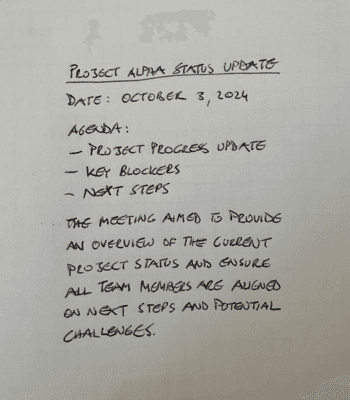 PROJECT ALPHA STATUS UPDATE
DATE: OCTOBER 3, 2024
AGENDA:
— PROJECT PROGRESS UPDATE
— KEY BLOCKERS
— NEXT STEPS
THE MEETING AIMED TO PROVIDE
AN OVERVIEW OF THE CURRENT
PROJECT STATUS AND ENSURE
ALL TEAM MEMBERS ARE ALIGNED
ON NEXT STEPS AND POTENTIAL
CHALLENGES.